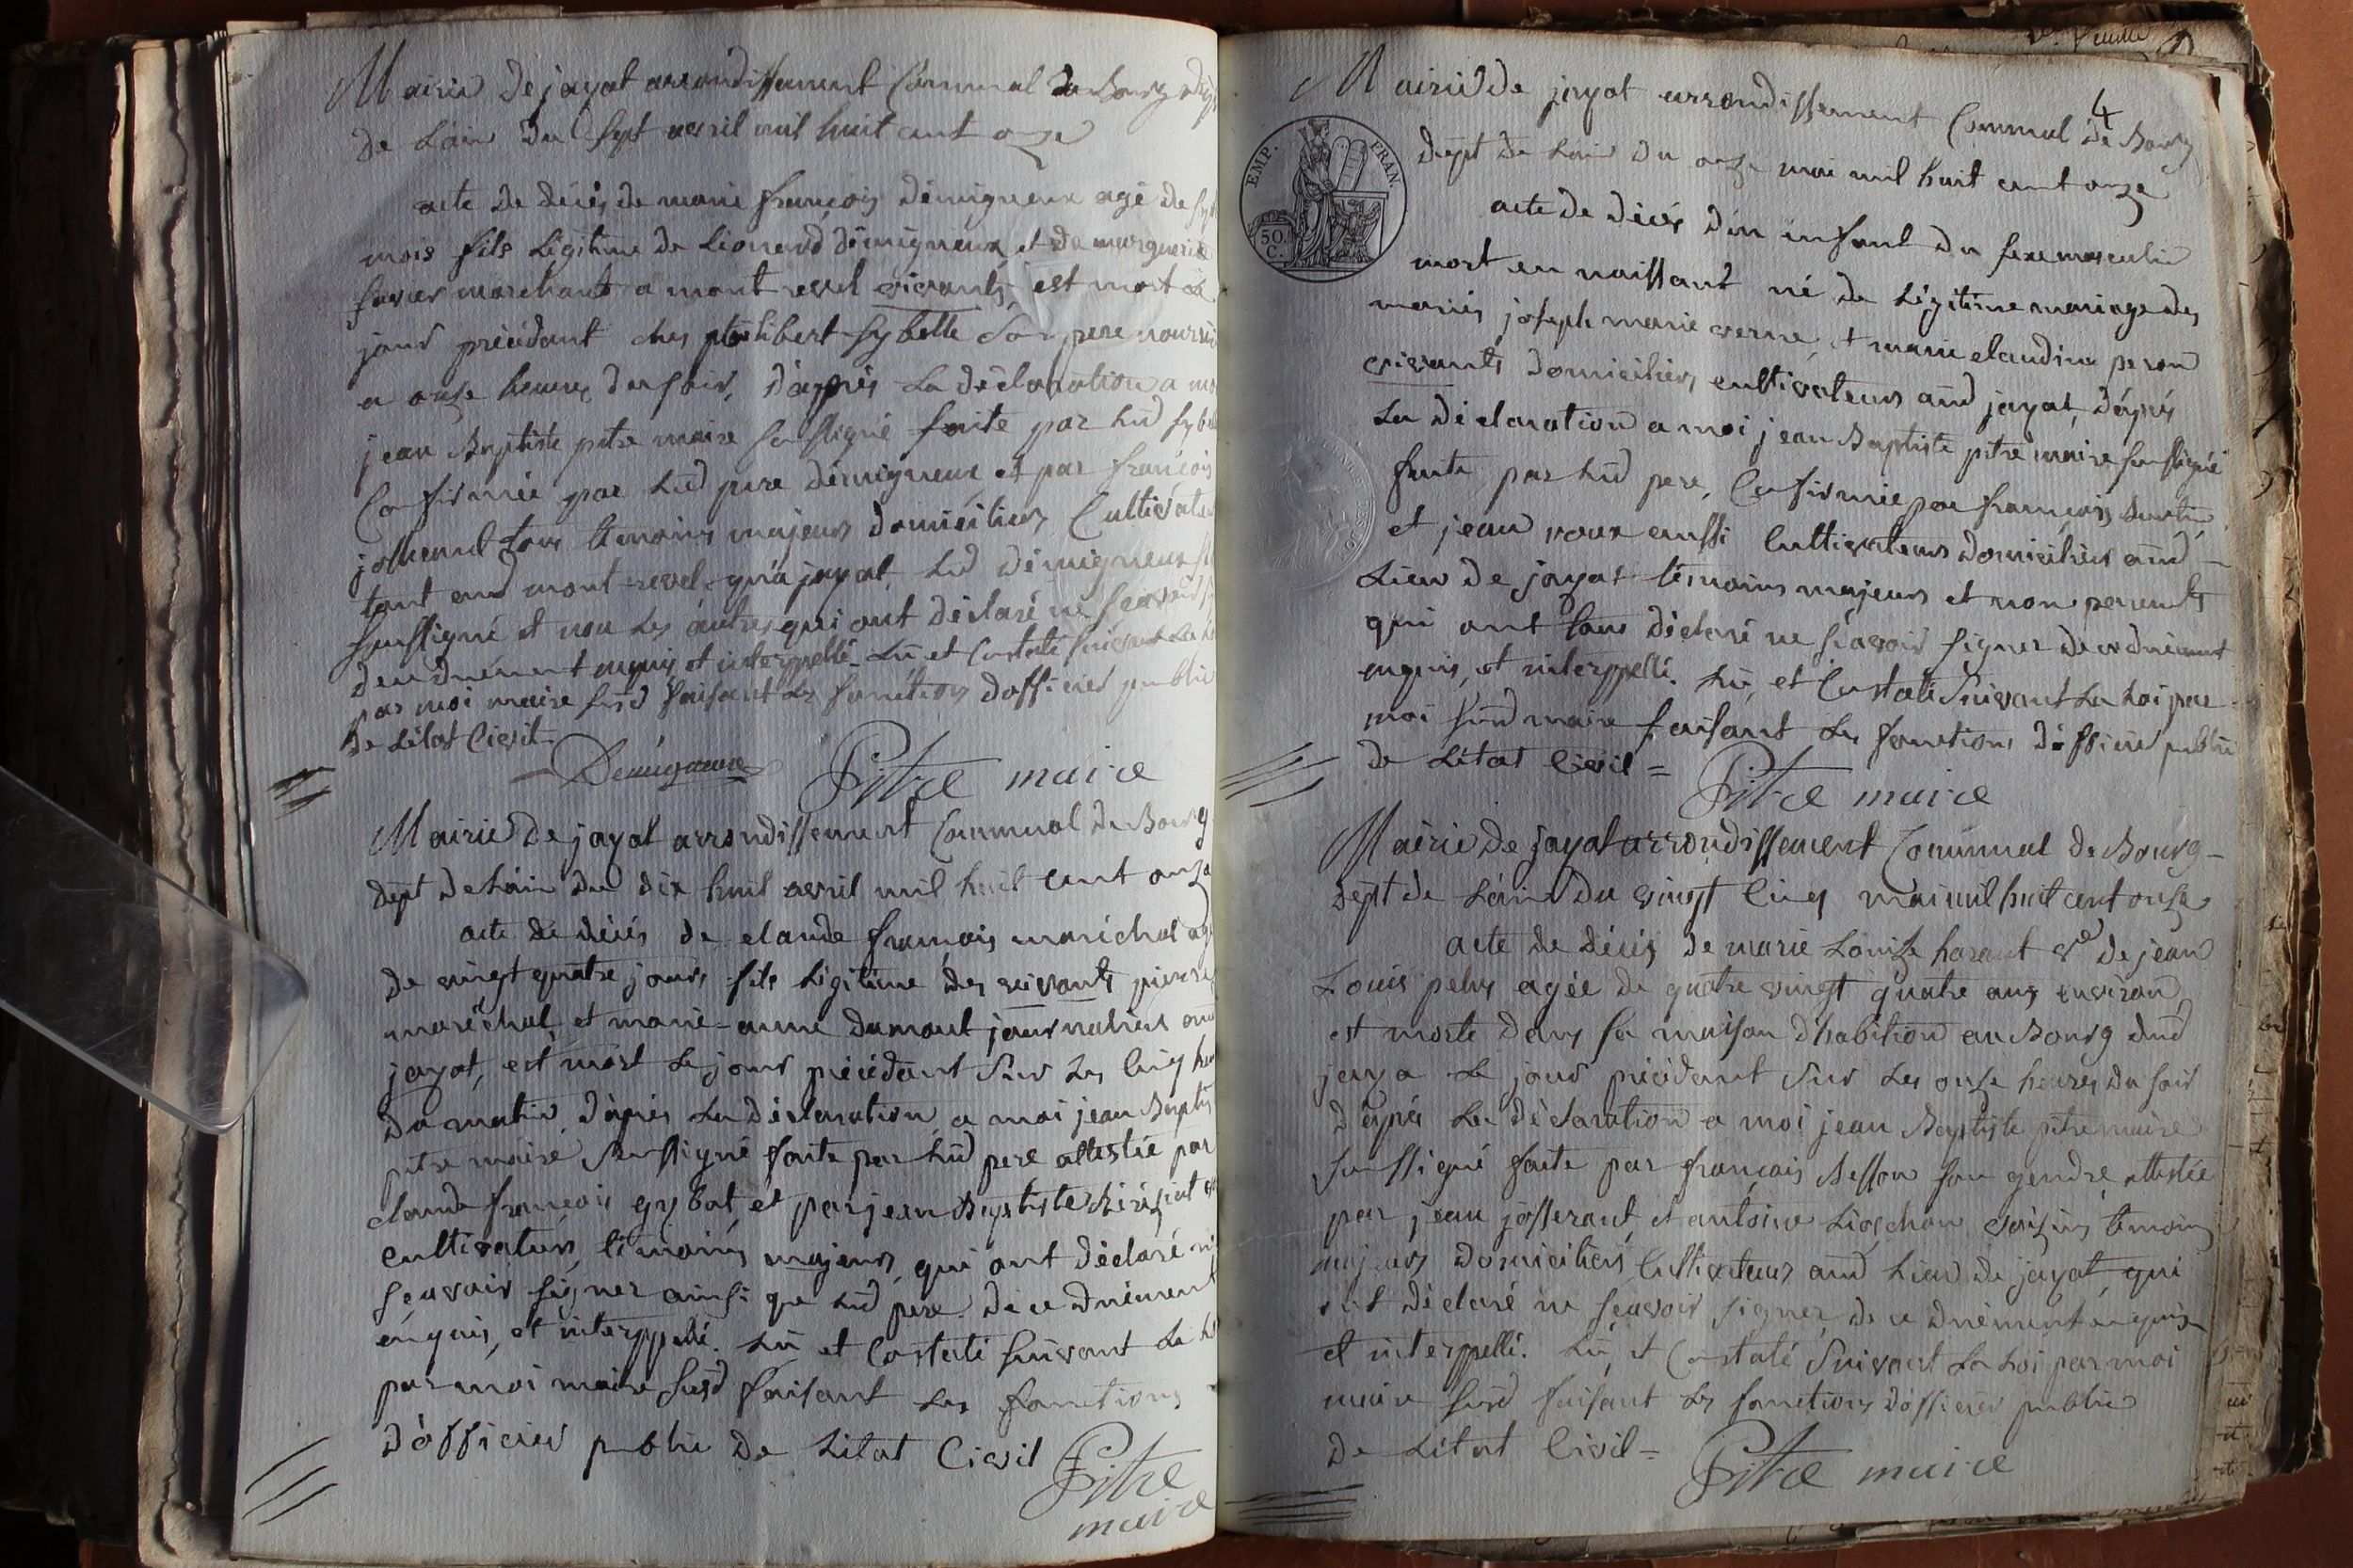 Mairie de jayat arrondissement Communal de Bourg dépt
de L'ain du sept avril mil huit cent onze
acte de décés de marie françois démigneux agé de sept
mois fils légitime de Léonard démigneux et de marguerite
marchants a mont revel vivants, est mort le
jour précédant ches philibert sybelle son pere nourri
a onze heures du soir, d'après La déclaration a moi
jean Baptiste pitre maire soussigné faite par Lud
Confirmée par Lud pere démigneux et par françois
tous témoins majeurs domiciliers Cultivateurs
tant aud mont-revel qu'a jayat Lud démigneux
soussigné et non Les autres qui ont déclaré ne sçavoir
de ce dnement enquis et interppellé. Lu et Constaté suivant La Loi
par moi maire susd faisant Les fonctions d'officier public
de L'état Civil
Démigneux Pitre maire
Mairie de jayat arrondissement Communal de Bourg
dépt de L'ain du dix huit avril mil huit cent onze
acte de décés de claude françois maréchal agé
de vingt quatre jours fils Légitime des vivants pierre
maréchal et marie-anne dumont journaliers aud
jayat, est mort Le jour précédant sur Les cinq heu
du matin, d'après La déclaration a moi jean Baptis
pitre maire soussigné faite par Lud pere attestée par
claude françois et par jean Baptiste
cultivateurs, témoins majeurs, qui ont déclaré ne
sçavoir signer ainsi que Lud pere de ce dnement
enquis, et interppellé. Lu et Constaté suivant La Loi
par moi maire susd faisant Les fonctions
d'officier public de L'état Civil
Pitre
maire
4
Mairie de jayat arrondissement Communal de Bourg
dépt de L'ain du onze mai mil huit cent onze
EMP. FRAN.
50. C.
acte de décés d'un enfant du sexe masculin
mort en naissant né de Légitime mariage des
mariés joseph marie verne, et marie claudine peron
vivants domiciliers cultivateurs aud jayat, d'après
La déclaration a moi jean Baptiste pitre maire soussigné
faite par Lud pere, Confirmée par françois
et jean roux aussi Cultivateurs domiciliers aud
Lieu de jayat témoins majeurs et non parents
qui ont tous déclaré ne sçavoir signer de ce dnement
enquis, et interppellé. Lu, et Constaté suivant La Loi par
moi susd maire faisant Les fonctions d'officier public
de L'état Civil =
Pitre maire
Mairie de jayat arrondissement Communal de Bourg
dépt de L'ain du vingt cinq mai mil huit cent onze
acte de décés de marie Louise ve de jean
Louis agée de quatre vingt quatre ans environ
est morte dans sa maison d'habition au Bourg dud
jaya Le jour précédant sur Les onze heures du soir
d'après La déclaration a moi jean Baptiste pitre maire
soussigné faite par françois Besson son gendre attestée
par jean josserant, et antoine voisins témoins
majeurs domiciliers Cultivateurs aud Lieu de jayat, qui
ont déclaré ne sçavoir signer de ce dnement enquis
et interppellé. Lu, et Constaté suivant La Loi par moi
maire susd faisant Les fonctions d'officier public
de L'état Civil =
Pitre maire